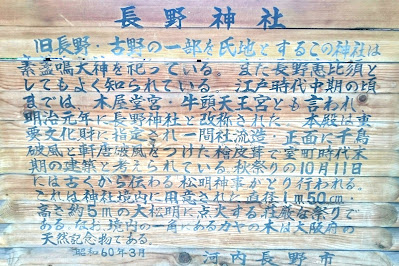 長野神社
旧長野・古野の一部を氏地とするこの神社は
素盞嗚大神を祀っている。また長野恵比須と
してもよく知られている。江戸時代中期の頃
までは、木屋堂宮・牛頭天王宮とも言われ
明治元年に長野神社と改称された。本殿は重
要文化財に指定され一間社流造・正面に千鳥
破風と軒唐破風をつけた桧皮葺で室町時代末
期の建築と考えられている。秋祭りの10月11日
には古くから伝わる松明神事がとり行われる。
これは神社境内に用意された直径1m50cm・
高さ約5mの大松明に点火する荘厳な祭りで
ある。なお、境内の一角にあるカヤの木は大阪府の
天然記念物である。
昭和60年3月 河内長野市